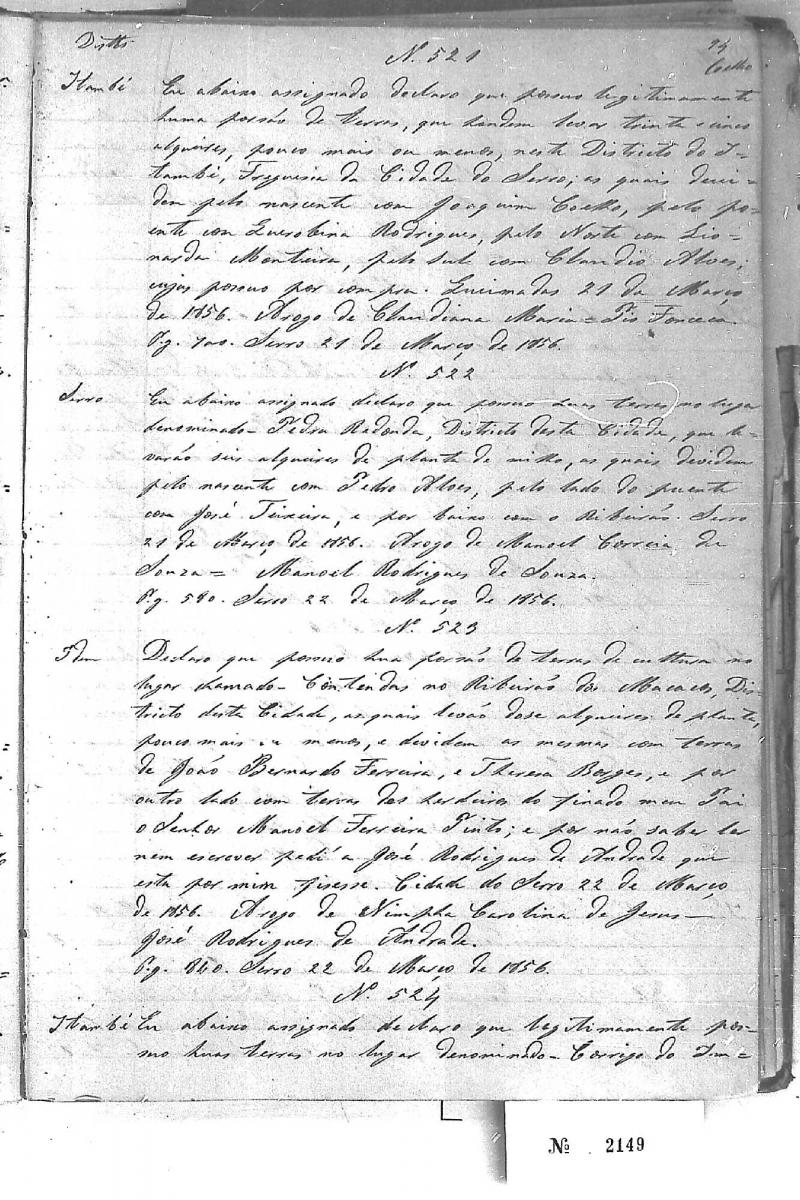 Distto
N. 521
94
Coelho
Itambé Eu abaixo assignado declaro que possuo legitimamente
huma porsão de terras, que handem levar trinta e cinco
alqueires, pouco mais ou menos, neste Districto do I=
també, Freguesia da Cidade do Serro; as quais devi=
dem pelo nascente com Joaquim Coelho, pelo po=
ente com Querobina Rodrigues, pelo Norte com Lio=
narda Monteira, pelo sul com Claudio Alves;
cujas possuo por compra. Queimadas 21 de Março
de 1856. Arogo de Claudiana Maria = Pio Fonceca.
Pg. 700. Serro 21 de Março de 1856.
N. 522
Serro Eu abaixo assignado declaro que possuo huas terras no lugar
denominado = Pedra Redonda, Districto desta Cidade, que le=
varão seis alqueires de planta de milho, as quais devidem
pelo nascente com Pedro Alves, pelo lado do puente
com José Teixeira, e por baixo com o Ribeirão. Serro
21 de Março de 1856. Arogo de Manoel Correia de
Souza = Manoel Rodrigues de Souza.
Pg. 590. Serro 22 de Março de 1856.
N. 523
Idem Declaro que possuo hua porsão de terras de cultura no
lugar chamado = Contendas no Ribeirão dos Macacos, Dis=
tricto desta Cidade, as quais levão dose alqueires de planta,
pouco mais ou menos, e devidem as mesmas com terras
de João Bernardo Ferreira, e Theresa Borges, e por
outro lado com terras dos herdeiros do finado meu Pai
o Senhor Manoel Ferreira Pinto; e por não saber ler
nem escrever pedi a José Rodrigues de Andrade que
esta por mim fisesse. Cidade do Serro 22 de Março
de 1856. Arogo de Nimpha Carolina de Jesus =
José Rodrigues de Andrade.
Pg. 840. Serro 22 de Março de 1856.
N. 524
Itambé Eu abaixo assignado declaro que legitimamente pos=
suo huas terras no lugar denominado = Corrigo do
№ 2149